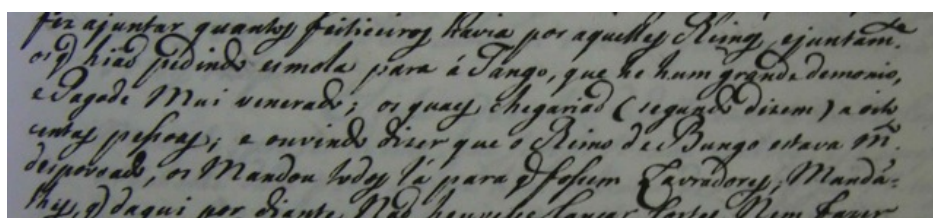 fez ajuntar quantos feiticeiros havia por aquelles Reinos, e juntam.te
os q̃ hiaõ pedindo esmola para á Tango, que he hum grande demonio,
e Pagode Mui venerado; os quaes chegariaõ (segundo dizem) a oito
centas pessoas; e ouvindo dizer que o Reino de Bungo estava m.to
despovoado, os Mandou todos lá para q̃ fossem Lavradores, Mandã-
lhes, q̃ daqui por diante Naõ houvesse lançar sortes Nem fazer